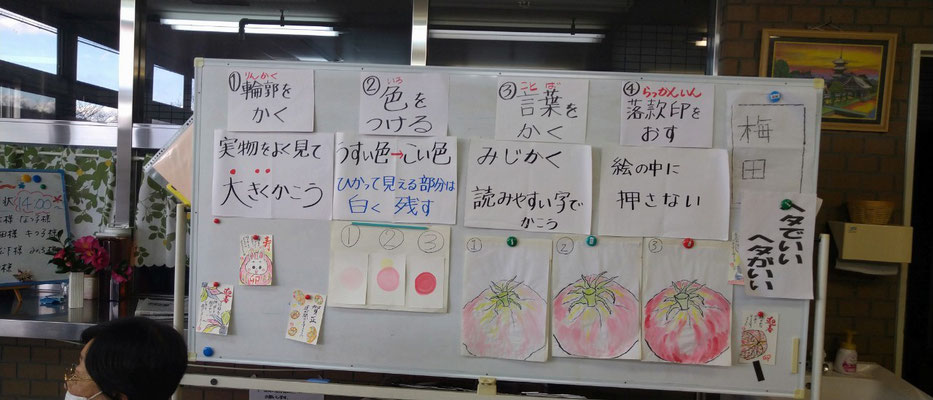 ① りんかく
輪郭を
かく
② いろ
色を
つける
③ ことば
言葉を
かく
④ らっかんいん
落款印を
おす
梅田
実物をよく見て
大きくかこう
うすい色→こい色
ひかって見える部分は
白く残す
みじかく
読みやすい字で
かこう
絵の中に
押さない
ヘタでいい
ヘタがいい
① ② ③
①
②
③